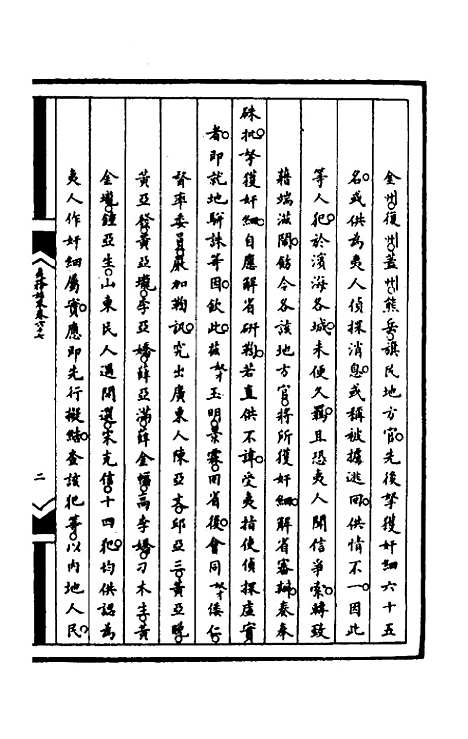 金州復州蓋州熊岳旗民地方官先後拏獲奸細六十五
名或供為夷人偵探消息或稱被擄逃回供情不一因此
等人犯於濱海各城未便久羈且恐夷人聞信爭索轉致
藉端滋鬧飭令各該地方官將所獲奸細解省審辦奏奉
硃批拏獲奸細自應解省研鞫若直供不諱受夷指使偵探虛實
者即就地駢誅等因欽此茲奴才玉明景霖回省復會同奴才倭仁
督率委員嚴加鞫訊究出廣東人陳亞 邱亞三黃亞晚
黃亞發黃亞瓏李亞嬌薛亞滿薛金幅高李嬌刁木生黃
金瓏鍾亞生山東民人遇開選宋克信十四犯均供認為
夷人作奸細屬實應即先行擬結查該犯等以內地人民
卷六十七
二